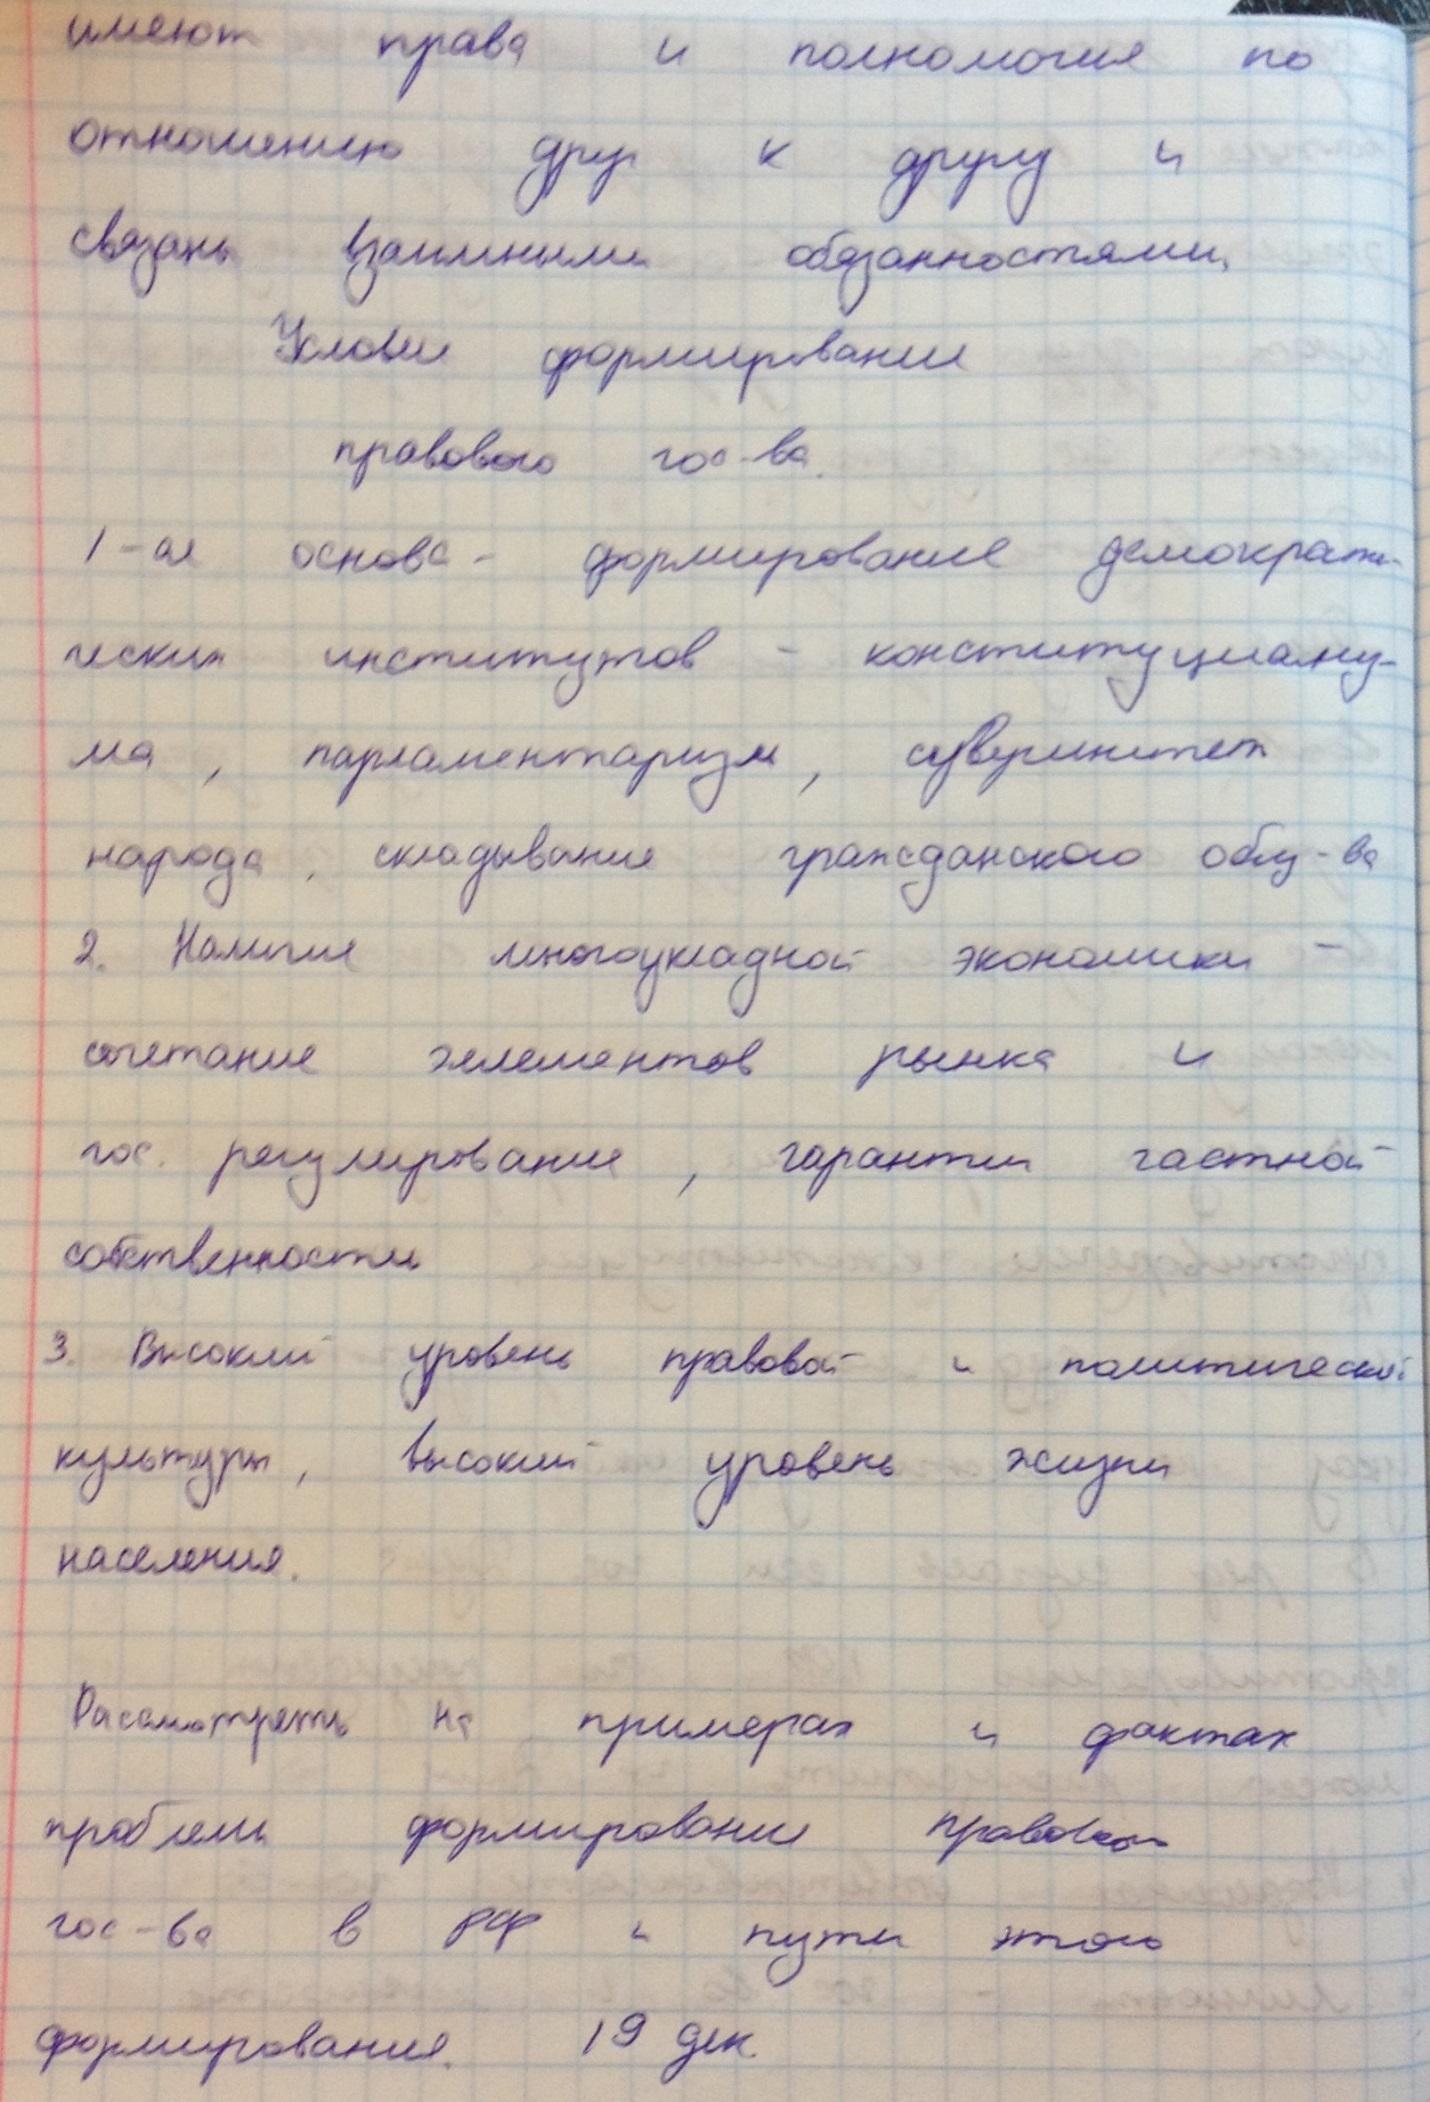 имеют права и полномочия по
отношению друг к другу и
связаны взаимными обязанностями.
Условия формирования
правового гос-ва.
1-ая основа - формирование демократи-
ческих институтов - конституциализ-
ма, парламентаризм, суверинитет
народа, складывание гражданского общ-ва
2. Наличие многоукладной экономики -
сочетание элементов рынка и
гос. регулирование, гарантии частной
собственности
3. Высокий уровень правовой и политической
культуры, высокий уровень жизни
населения.
Рассмотреть на примерах и фактах
проблемы формирования правового
гос-ва в РФ и пути этого
формирования. 19 дек.